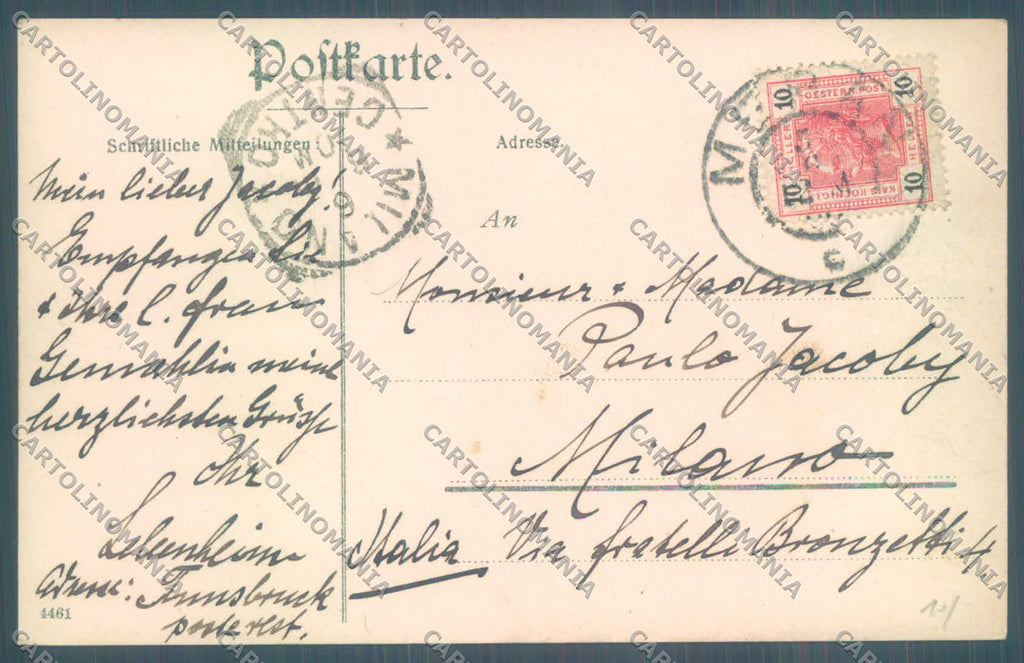 Postkarte.
Schriftliche Mitteilungen:
Adresse
An
Mein lieber Jacoby!
Empfangen Sie
& Ihre l. Frau
Gemahlin meine
herzlichsten Grüsse
Ihr
Adresse: Innsbruck
poste rest.
4461
Monsieur & Madame
Paulo Jacoby
Milano
Italia Via fratelli Bronzetti 4
MILANO
CENTRO
10 10
OESTERR. POST
HELLER HELLER
KAIS. KÖNIGL.
10 10
ME
c
CARTOLINOMANIA